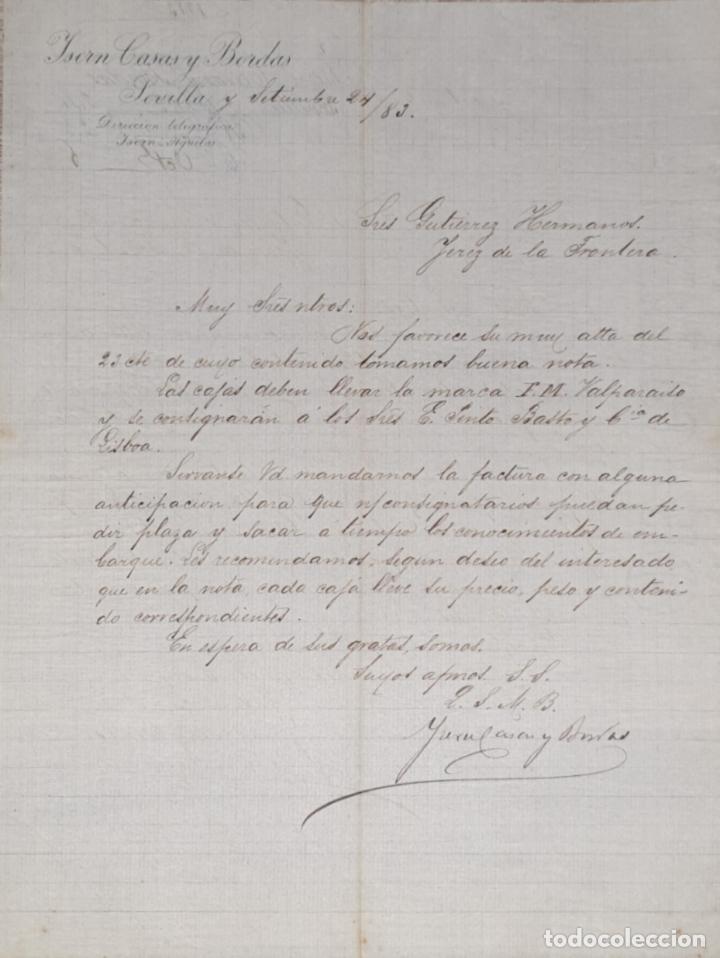 Isern Casas y Bordas
Sevilla y Setiembre 24/83.
Direccion telegráfica
Isern-Aguilas
Sres Gutierrez Hermanos.
Jerez de la Frontera.
Muy Sres ntros:
Nos favorece su muy atta del
23 cte de cuyo contenido tomamos buena nota.
Las cajas deben llevar la marca F.M. Valparaiso
y se consignarán á los Sres E. Pinto Basto y Cia de
Lisboa.
Sirvanse Vd mandarnos la factura con alguna
anticipacion para que n/consignatarios puedan pe-
dir plaza y sacar a tiempo los conocimientos de em-
barque. Les recomendamos, segun deseo del interesado
que en la nota, cada caja lleve su precio, peso y conteni-
do correspondientes.
En espera de sus gratas, somos.
Suyos afmos. S.S.
Q.S.M.B.
Isern Casas y Bordas
todocoleccion